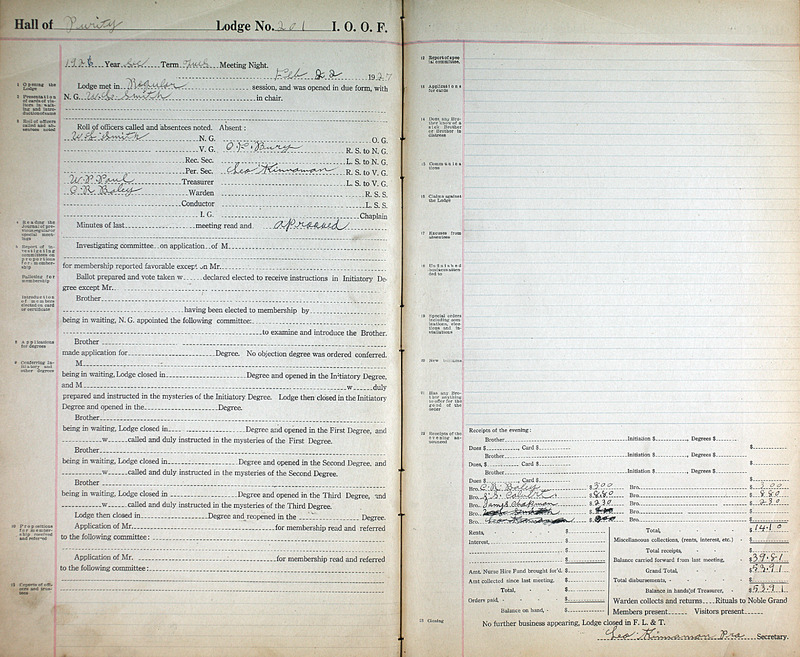 Hall of Purity Lodge No. 201 I. O. O. F.
1926 Year Term Meeting Night.
Feb 22 1927
1 Opening the Lodge
Lodge met in Regular session, and was opened in due form, with
N. G. W. S. Smith in chair.
3 Roll of officers called and absentees noted
Roll of officers called and absentees noted. Absent:
W S Smith N. G. O. G.
V. G. R. S. to N. G.
Rec. Sec. L. S. to N. G.
Per. Sec. Geo Kinnaman R. S. to V. G.
W. P. Paul Treasurer L. S. to V. G.
O. R. Baley Warden R. S. S.
Conductor L. S. S.
I. G. Chaplain
Minutes of last meeting read and approved
Investigating committee on application of M
for membership reported favorable except on Mr.
Balloting for membership
Ballot prepared and vote taken w declared elected to receive instructions in Initiatory De-
gree except Mr.
Brother
having been elected to membership by
being in waiting, N. G. appointed the following committee:
to examine and introduce the Brother.
8 Applications for degrees
Brother
made application for Degree. No objection degree was ordered conferred.
9 Conferring Initiatory and other degrees
M
being in waiting, Lodge closed in Degree and opened in the Initiatory Degree,
and M w duly
prepared and instructed in the mysteries of the Initiatory Degree. Lodge then closed in the Initiatory
Degree and opened in the Degree.
Brother
being in waiting, Lodge closed in Degree and opened in the First Degree, and
w called and duly instructed in the mysteries of the First Degree.
Brother
being in waiting, Lodge closed in Degree and opened in the Second Degree, and
w called and duly instructed in the mysteries of the Second Degree.
Brother
being in waiting, Lodge closed in Degree and opened in the Third Degree, and
w called and duly instructed in the mysteries of the Third Degree.
Lodge then closed in Degree and reopened in the Degree.
10 Propositions for membership received and referred
Application of Mr. for membership read and referred
to the following committee:
Application of Mr. for membership read and referred
to the following committee:
12 Report of special committee.
13 Applications for cards
14 Does any Brother know of a sick Brother or Brother in distress
15 Communications
16 Claims against the Lodge
17 Excuses from absentees
18 Unfinished business
19 Special orders including nominations, elections and installations
20 New business
21 Has any Brother anything to offer for the good of the order
22 Receipts of the evening announced
Receipts of the evening:
Brother Initiation $ , Degrees $
Dues $ , Card $ $
Brother Initiation $ , Degrees $
Dues, $ , Card $ $
Brother Initiation $ , Degrees $
Dues $ , Card $ $
Bro. O. R. Baley $ 300 Bro. $ 3.00
Bro. $ 880 Bro. $ 880
Bro. James Chapman $ 230 Bro. $ 230
Bro. $ Bro. $
Bro. Geo Kinnaman $ Bro. $
Rents, $ Total, $ 14.10
Interest, $ Miscellaneous collections, (rents, interest, etc.) $
$ Total receipts,
$ Balance carried forward from last meeting, $ 39.81
Amt. Nurse Hire Fund brought for'd. $ Grand Total, $ 53.91
Amt collected since last meeting. $ Total disbursements, $
Total, $ Balance in hands of Treasurer, $ 53.91
Orders paid, $ Warden collects and returns Rituals to Noble Grand
Balance on hand, $ Members present Visitors present
23 Closing
No further business appearing, Lodge closed in F. L. & T.
Geo Kinnaman Pro Secretary.